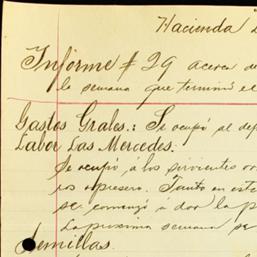 Hacienda
Informe # 29 acerca de
la semana que terminó el
Gastos Grales.: Se ocupó al de
Labor Las Mercedes.
Se ocupó á los sirvientes or
ros represero. Tanto en este
se comenzó á dar la p
La proxima semana se
Semillas.